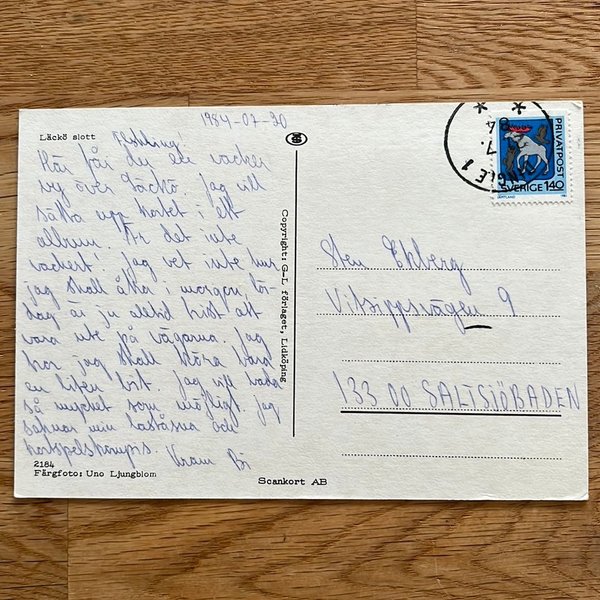 1984-07-30
Läckö slott
Älskling!
Här får du en vacker
vy över Läckö. Jag vill
sätta upp kortet i ett
album. Är det inte
vackert! Jag vet inte hur
jag skall åka i morgon, lör-
dag är ju alltid host att
vara ute på vägarna. Jag
tror jag skall köra bara
en liten bit. Jag vill bada
så mycket som möjligt. Jag
saknar min och
Kram Bi
2184
Färgfoto: Uno Ljungblom
Copyright: G-L förlaget, Lidköping
Scankort AB
TINGLE 1
7. 84
PRIVATPOST
SVERIGE 140
JÄMTLAND
Sten Ekberg
Vitsippsvägen 9
133 00 SALTSJÖBADEN